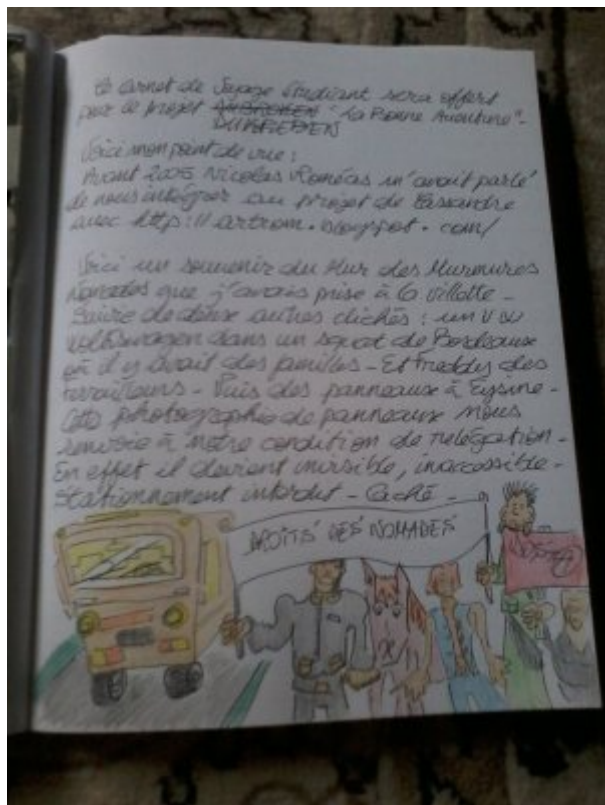 Ce carnet de voyage étudiant sera offert
pour le projet "La Bonne Aventure" -
Voici mon point de vue :
Avant 2005 Nicolas Roméas m'avait parlé
de nous intégrer au projet de Cassandre
avec http://artrom.blogspot.com/
Voici un souvenir du Mur des Murmures
Nomades que j'avais prise à la Villette -
Suivre de deux autres clichés : un
Volkswagen dans un squat de Bordeaux
où il y avait des familles - Et Freddy des
ferrailleurs - Puis des panneaux à Eysine -
Cette photographie de panneaux nous
renvoie à notre condition de relégation -
En effet il devient invisible, inaccessible -
Stationnement interdit - Caché -
DROITS DES NOMADES